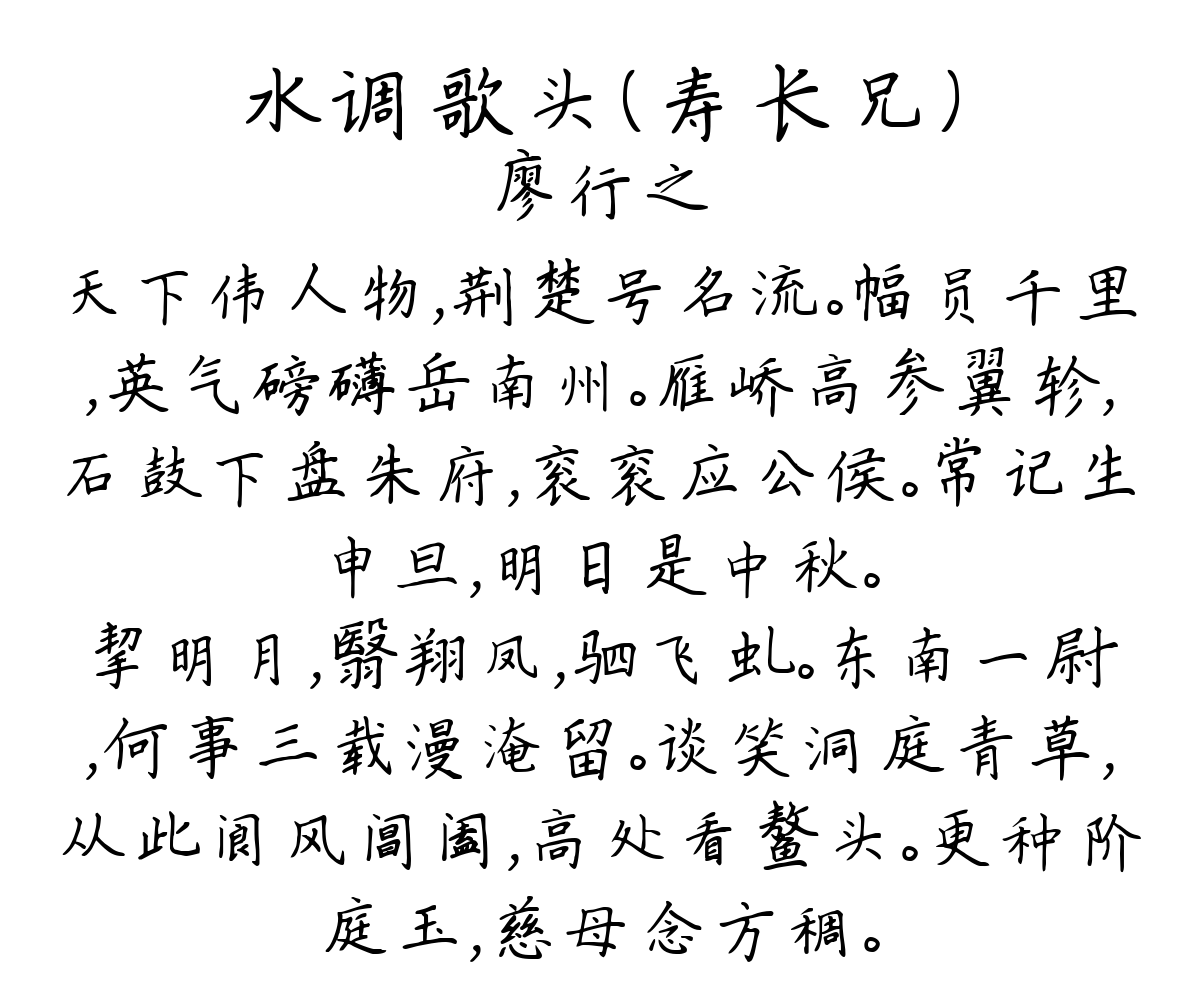 水调歌头(寿长兄)
廖行之
天下伟人物,荆楚号名流。幅员千里
,英气磅礴岳南州。雁峤高参翼轸,
石鼓下盘朱府,衮衮应公侯。常记生
申旦,明日是中秋。
挈明月,翳翔凤,驷飞虬。东南一尉
,何事三载漫淹留。谈笑洞庭青草,
从此阆风阊阖,高处看鳌头。更种阶
庭玉,慈母念方稠。